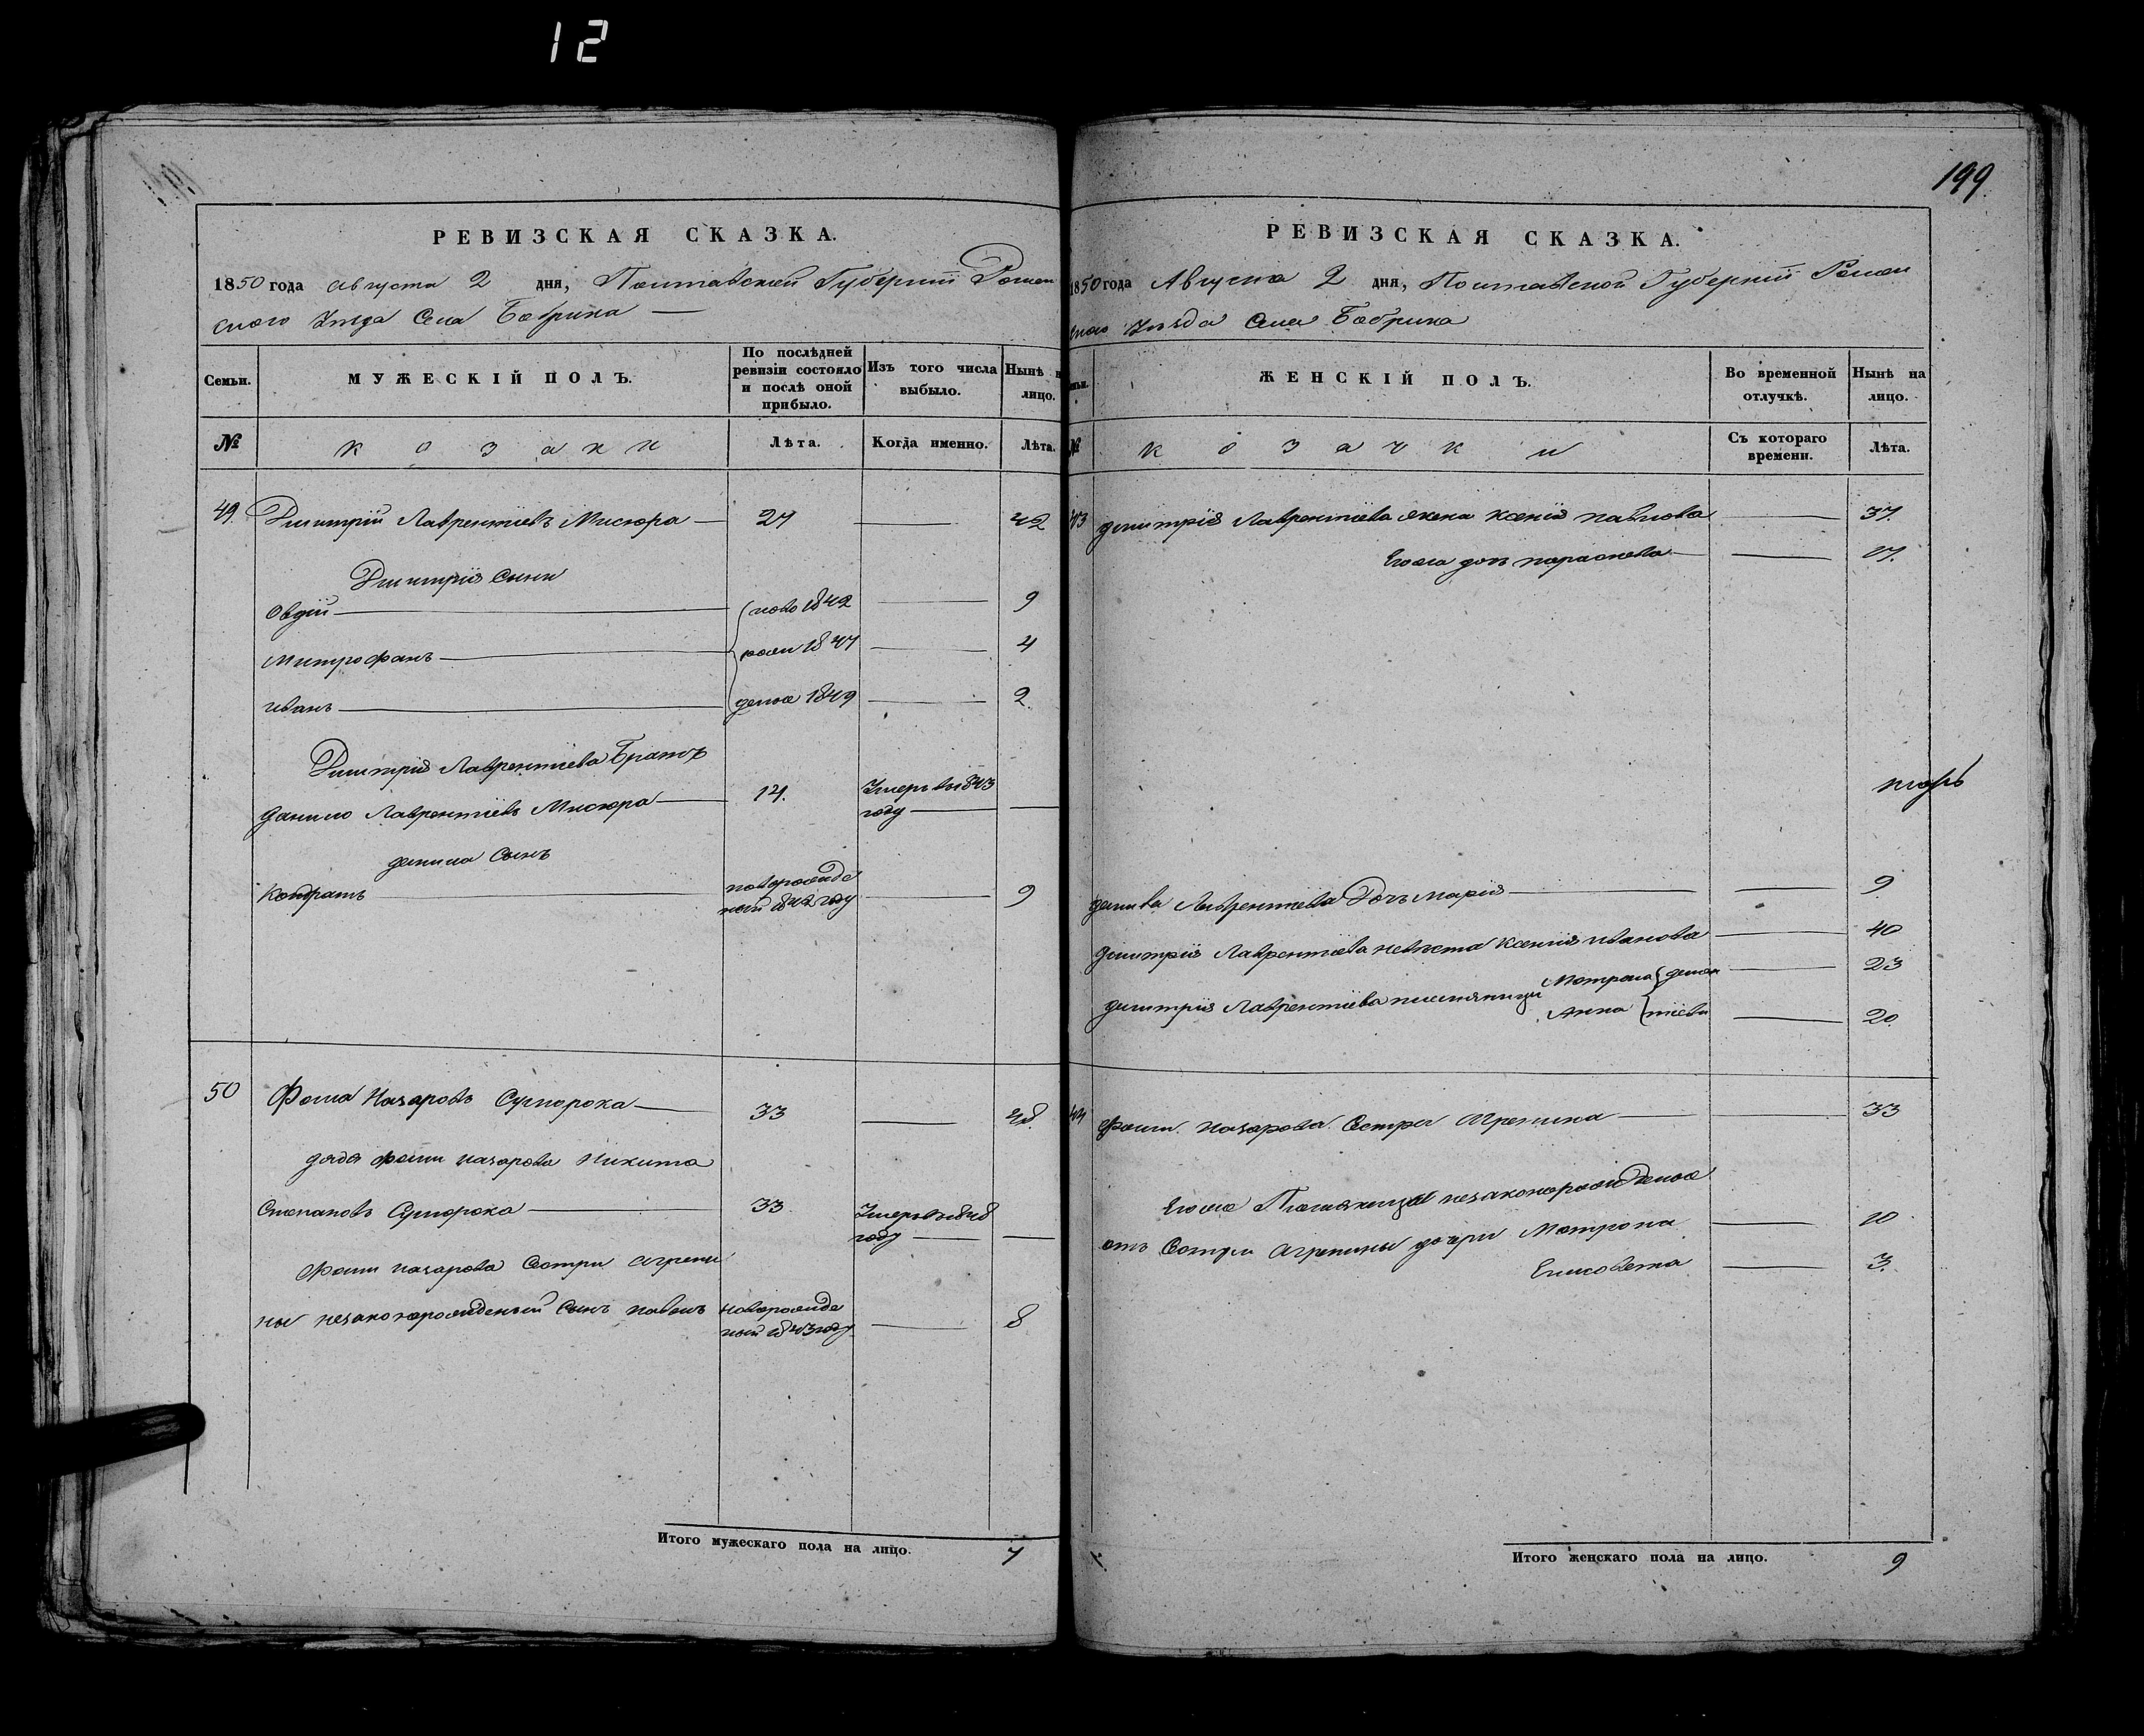 12
199
РЕВИЗСКАЯ СКАЗКА.
1850 года августа 2 дня, Полтавской Губерніи Ромен
ского Уезда Села Бобрика
Семьи.
МУЖЕСКІЙ ПОЛЪ.
По послѣдней ревизіи состояло и послѣ оной прибыло.
Изъ того числа выбыло.
Нынѣ на лицо.
№
козаки
Лѣта.
Когда именно.
Лѣта.
49. Димитрій Лаврентіевъ Мисюра 27 42
Димитрія сыни
Овдій 1842 9
Митрофанъ 1847 4
иванъ 1849 2.
Димитрія Лаврентіева Братъ
данило Лаврентіевъ Мисюра 14. Умеръ въ 1843
году
данила Сынъ
Кондратъ новорожде
ный 1842 году 9
50 Фома Назаровъ Сумпрока 33 48.
дядя фоми назарова Никита
Степановъ 33. Умеръ въ 1848
году
Фоми назарова Сестри Агрепи
ны незаконорожденый Сынъ павелъ новорожде
ный 1843 году 8
Итого мужескаго пола на лицо. 7
РЕВИЗСКАЯ СКАЗКА.
1850 года Августа 2 дня, Полтавской Губерніи Ромен
ского Уѣзда Села Бобрика
ЖЕНСКІЙ ПОЛЪ.
Во временной отлучкѣ.
Нынѣ на лицо.
№
козачки
Съ котораго времени.
Лѣта.
43 димитрія Лаврентіева жена Ксенія павлова 37.
Егожа дочь параскева 17.
данила Лаврентіева Дочь марія 9.
димитрія Лаврентіева невѣста Ксенія иванова 40
димитрія Лаврентіева племяници Мотрона 23
Анна 20.
44 фоми назарова Сестра Агрепина 33
Егожа Племяници незаконорожденые
отъ Сестри Агрепины дочери Мотрона 10
Елисовета 3.
Итого женскаго пола на лицо. 9